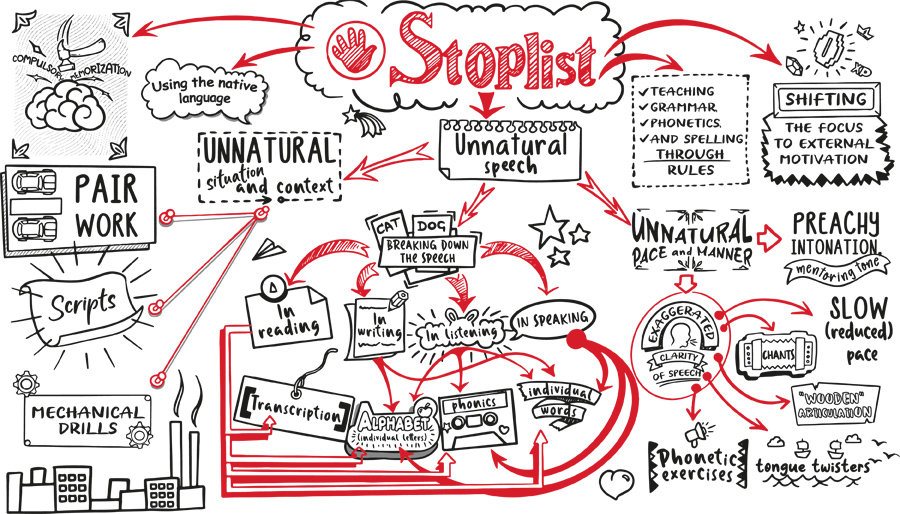 Stoplist
COMPULSORY MEMORIZATION
Using the native
language
TEACHING
GRAMMAR,
PHONETICS,
AND SPELLING
THROUGH
RULES
SHIFTING
THE FOCUS
TO EXTERNAL
MOTIVATION
Unnatural
speech
UNNATURAL
situation
and context
PAIR
WORK
Scripts
MECHANICAL
DRILLS
CAT
DOG
BREAKING DOWN
THE SPEECH
In
reading
In
writing
In listening
IN SPEAKING
[Transcription]
ALPHABET
(individual letters)
phonics
individual
words
UNNATURAL
PACE and MANNER
PREACHY
INTONATION,
mentoring tone
EXAGGERATED
CLARITY
OF SPEECH
SLOW
(reduced)
pace
CHANTS
"WOODEN"
ARTICULATION
Phonetic
exercises
tongue twisters